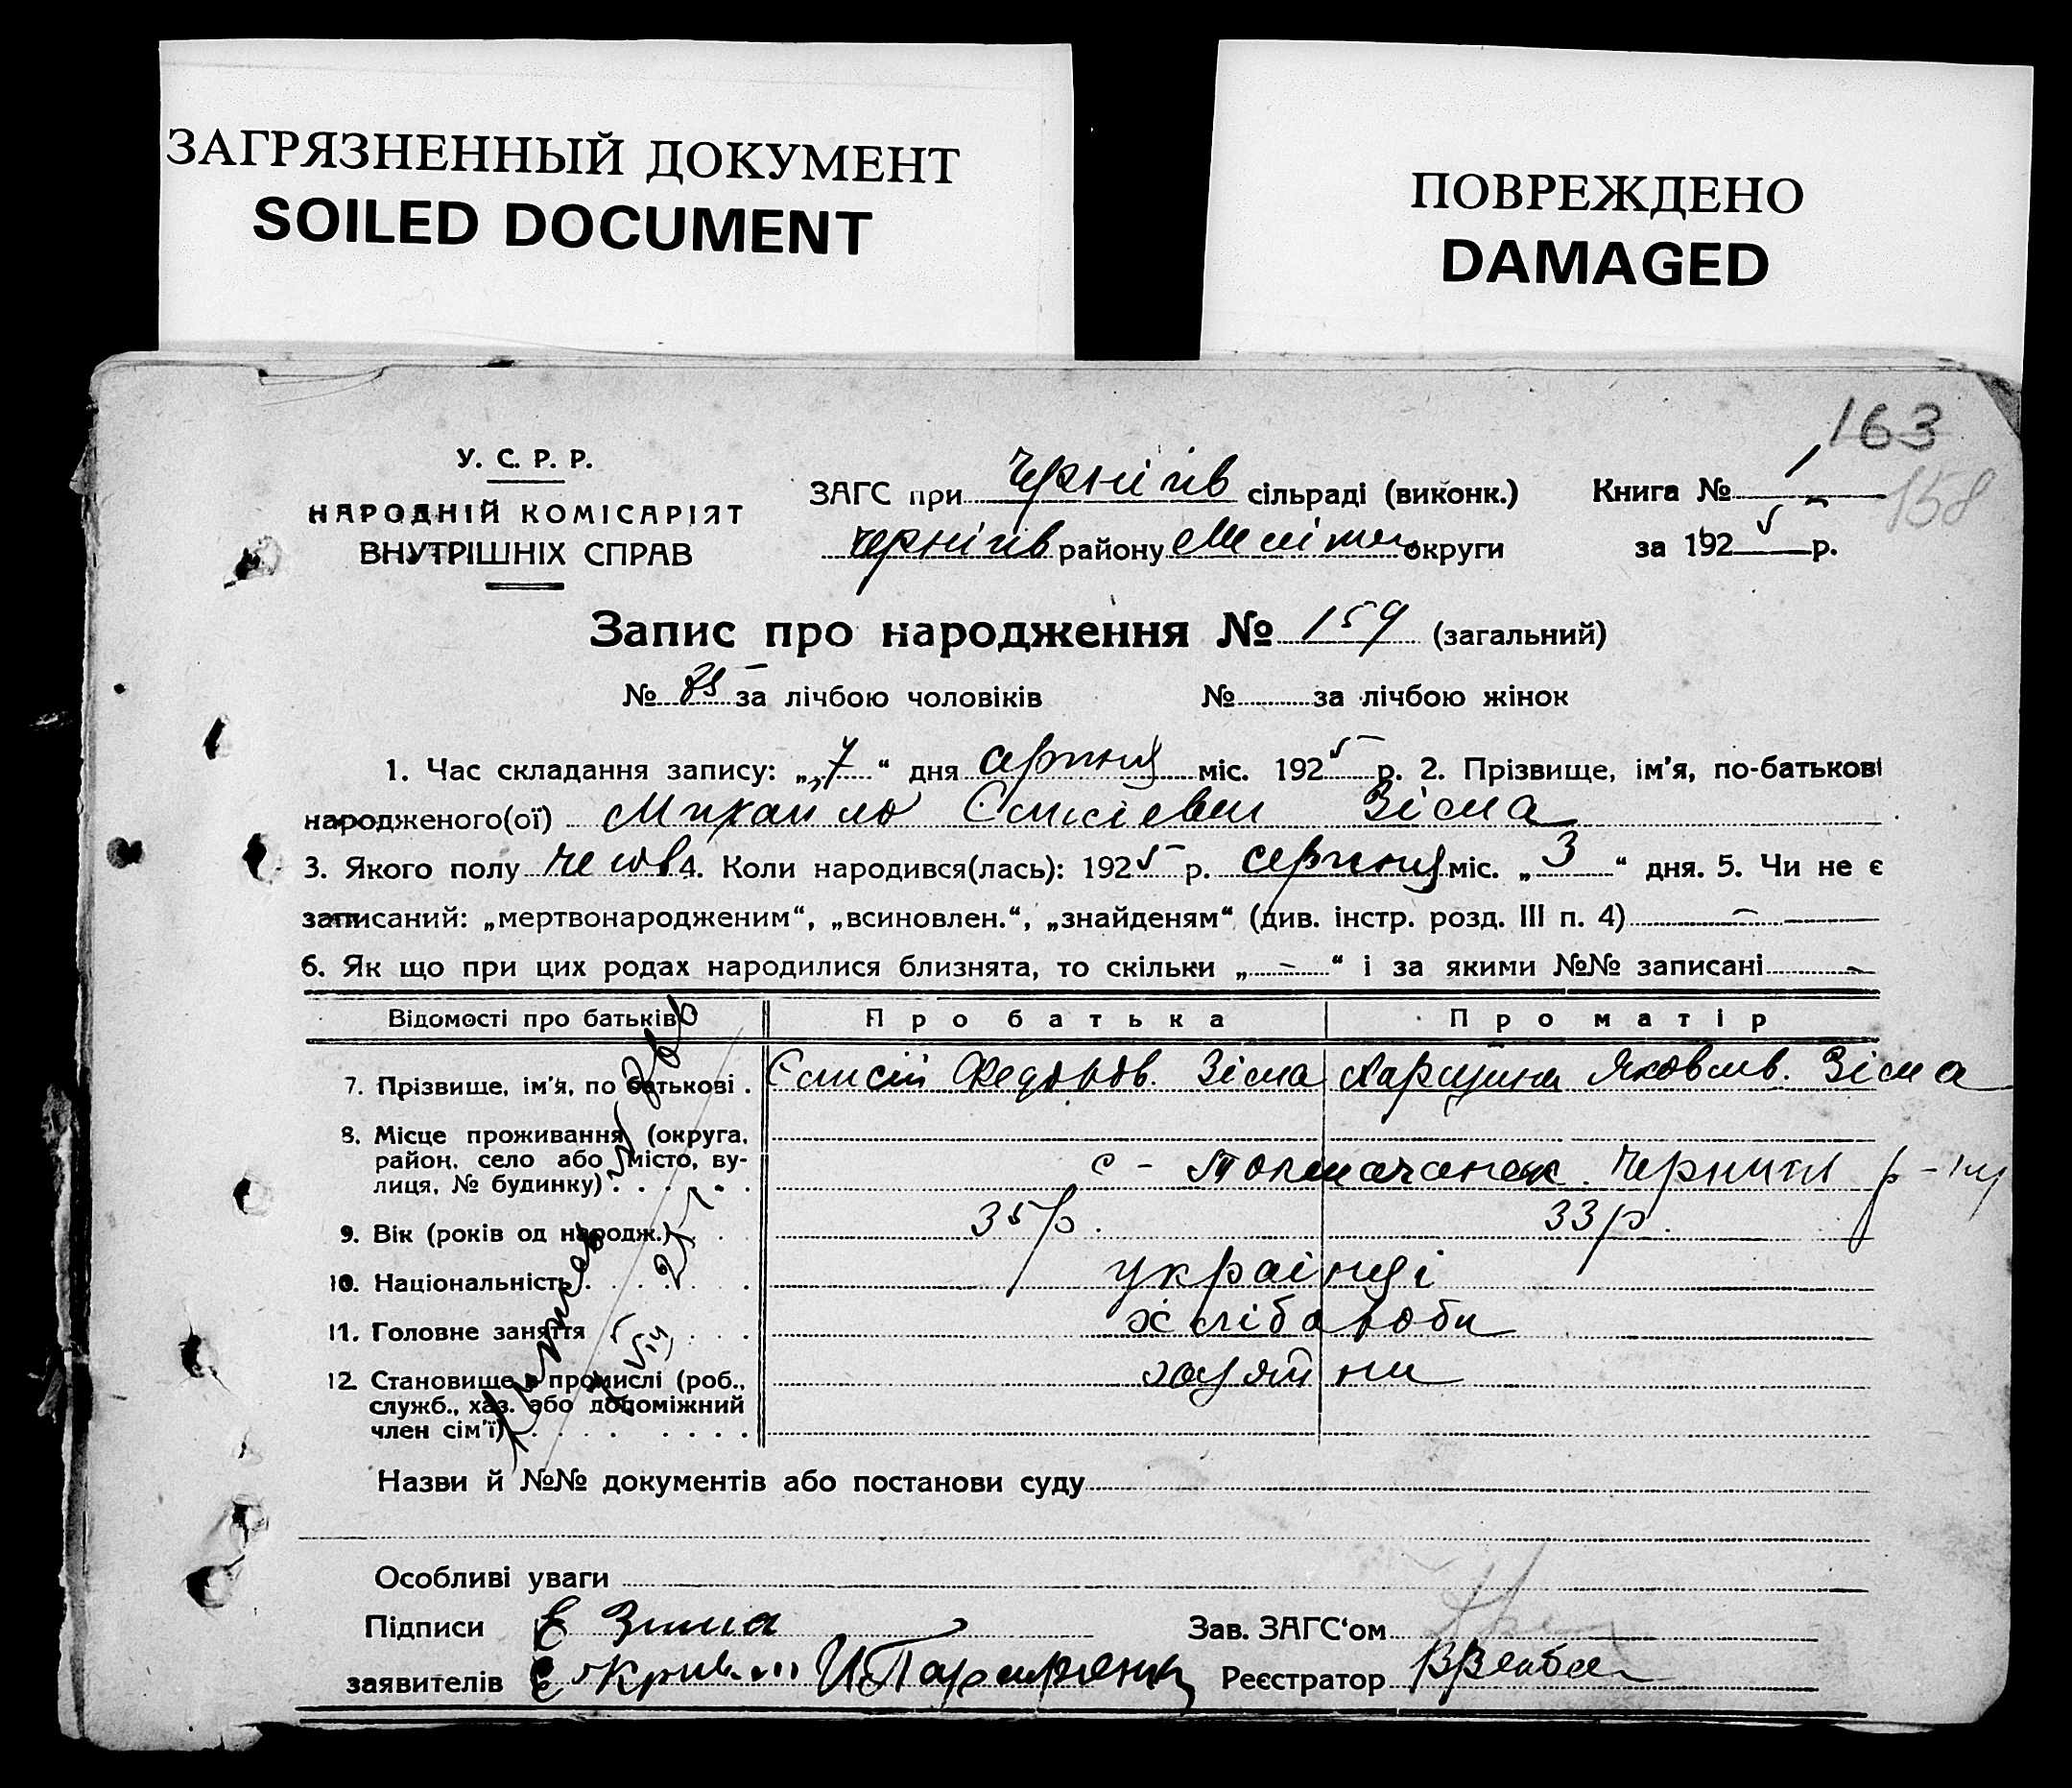 ЗАГРЯЗНЕННЫЙ ДОКУМЕНТ
SOILED DOCUMENT
ПОВРЕЖДЕНО
DAMAGED
163
158
У. С. Р. Р.
НАРОДНІЙ КОМІСАРІЯТ
ВНУТРІШНІХ СПРАВ
ЗАГС при Чернігів сільраді (виконк.)
Чернігів району Меліт округи
Книга № 1
за 1925 р.
Запис про народження № 159 (загальний)
№ 85 за лічбою чоловіків № за лічбою жінок
1. Час складання запису: „7“ дня серпня міс. 1925 р. 2. Прізвище, ім'я, по-батькові
народженого(ої) Михайло Єлисієвич Зіма
3. Якого полу чолов 4. Коли народився(лась): 1925 р. серпня міс. „3“ дня. 5. Чи не є
записаний: „мертвонародженим“, „всиновлен.“, „знайденям“ (див. інстр. розд. III п. 4) –
6. Як що при цих родах народилися близнята, то скільки „ – “ і за якими №№ записані –
Відомості про батьків Про батька Про матір
7. Прізвище, ім'я, по батькові . Єлисій Федоров. Зіма Яковлів. Зіма
8. Місце проживання (округа, район, село або місто, вулиця, № будинку) . . . . . с - Чернигів р-ну
9. Вік (років од народж.) . . 35 р. 33 р.
10. Національність . . . . українці
11. Головне заняття . . . хлібороби
12. Становище в промислі (роб., служб., хаз. або допоміжний член сім'ї) . . . . . . . . хозяїни
Назви й №№ документів або постанови суду
Особливі уваги
Підписи Е Зима Зав. ЗАГС'ом
заявителів Реєстратор